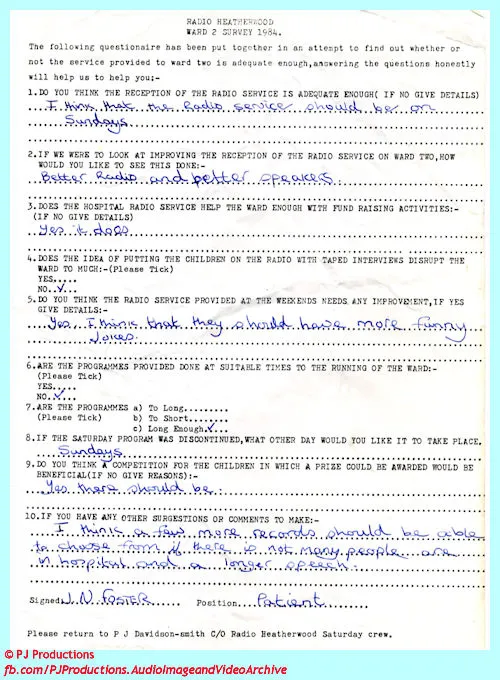 RADIO HEATHERWOOD
WARD 2 SURVEY 1984.
The following questionaire has been put together in an attempt to find out whether or
not the service provided to ward two is adequate enough,answering the questions honestly
will help us to help you:-
1.DO YOU THINK THE RECEPTION OF THE RADIO SERVICE IS ADEQUATE ENOUGH( IF NO GIVE DETAILS)
I think that the Radio service should be on
Sundays
2.IF WE WERE TO LOOK AT IMPROVING THE RECEPTION OF THE RADIO SERVICE ON WARD TWO,HOW
WOULD YOU LIKE TO SEE THIS DONE:-
Better Radio and better speakers
3.DOES THE HOSPITAL RADIO SERVICE HELP THE WARD ENOUGH WITH FUND RAISING ACTIVITIES:-
(IF NO GIVE DETAILS)
Yes it does
4.DOES THE IDEA OF PUTTING THE CHILDREN ON THE RADIO WITH TAPED INTERVIEWS DISRUPT THE
WARD TO MUCH:-(Please Tick)
YES.....
NO..✓...
5.DO YOU THINK THE RADIO SERVICE PROVIDED AT THE WEEKENDS NEEDS ANY IMPROVEMENT,IF YES
GIVE DETAILS:-
Yes I think that they should have more funny
Jokes.
6.ARE THE PROGRAMMES PROVIDED DONE AT SUITABLE TIMES TO THE RUNNING OF THE WARD:-
(Please Tick)
YES.....
NO..✓...
7.ARE THE PROGRAMMES a) To Long.........
(Please Tick) b) To Short........
c) Long Enough.✓...
8.IF THE SATURDAY PROGRAM WAS DISCONTINUED,WHAT OTHER DAY WOULD YOU LIKE IT TO TAKE PLACE.
Sundays
9.DO YOU THINK A COMPETITION FOR THE CHILDREN IN WHICH A PRIZE COULD BE AWARDED WOULD BE
BENEFICIAL(IF NO GIVE REASONS):-
Yes there should be
10.IF YOU HAVE ANY OTHER SURGESTIONS OR COMMENTS TO MAKE:-
I think a few more records should be able
to choose from if there is not many people are
in hospital and a longer speech.
Signed:J.N FOSTER Position Patient
Please return to P J Davidson-smith C/O Radio Heatherwood Saturday crew.
© PJ Productions
fb.com/PJProductions.AudioImageandVideoArchive